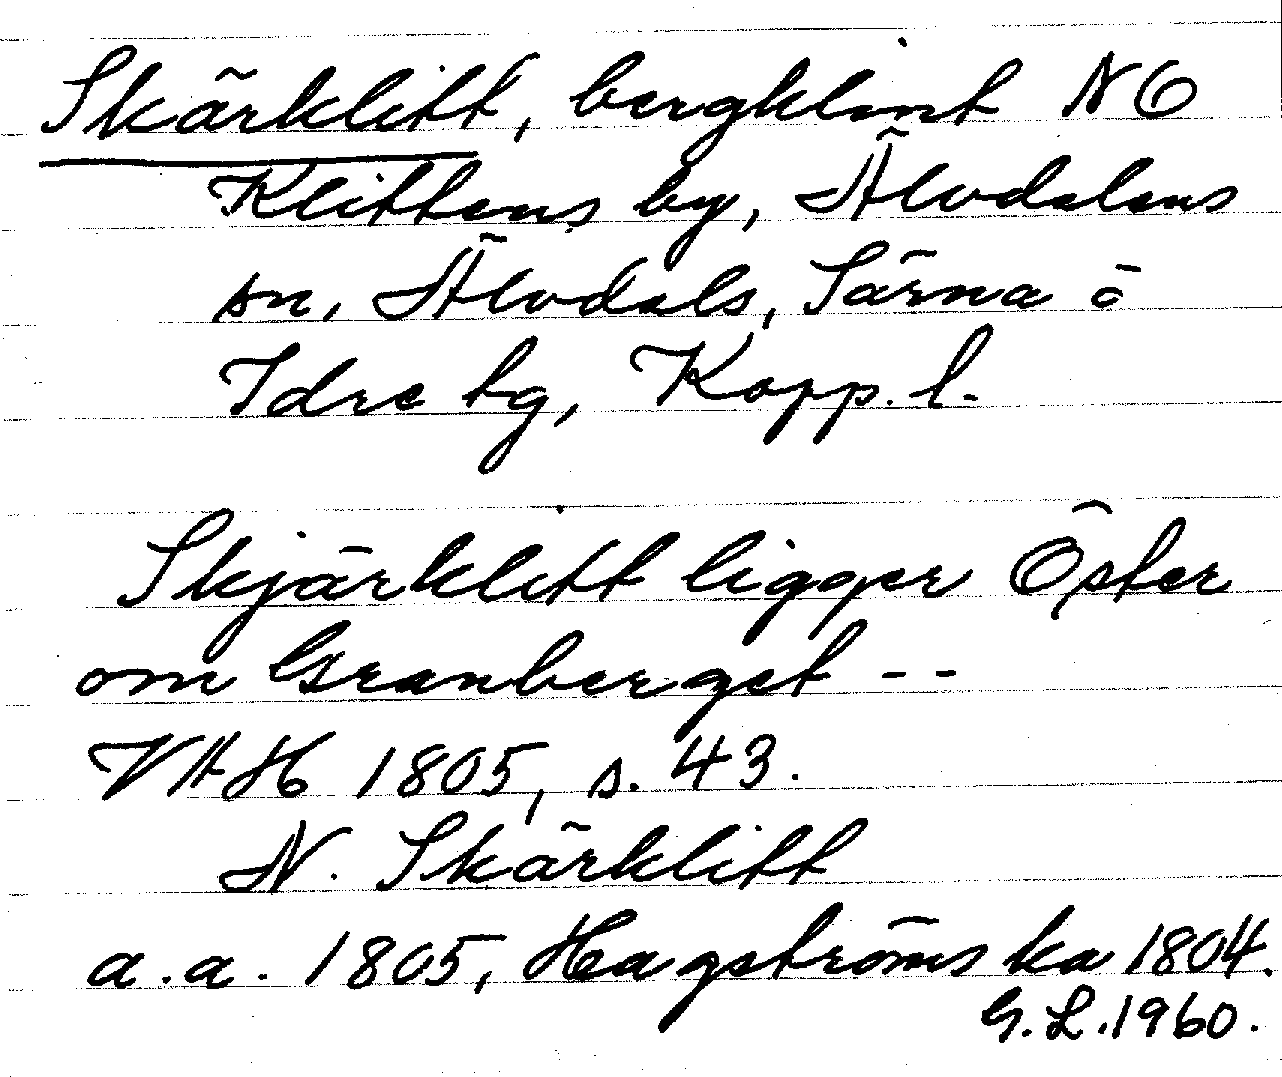 Skärklitt, bergklint NO
Klittens by, Älvdalens
sn, Älvdals, Särna ö
Idre tg, Kopp. l.
Skjärklitt ligger Öster
om Granberget - -
VAH 1805, s. 43.
N. Skärklitt
a.a. 1805, Hagströms ka 1804.
G. L. 1960.